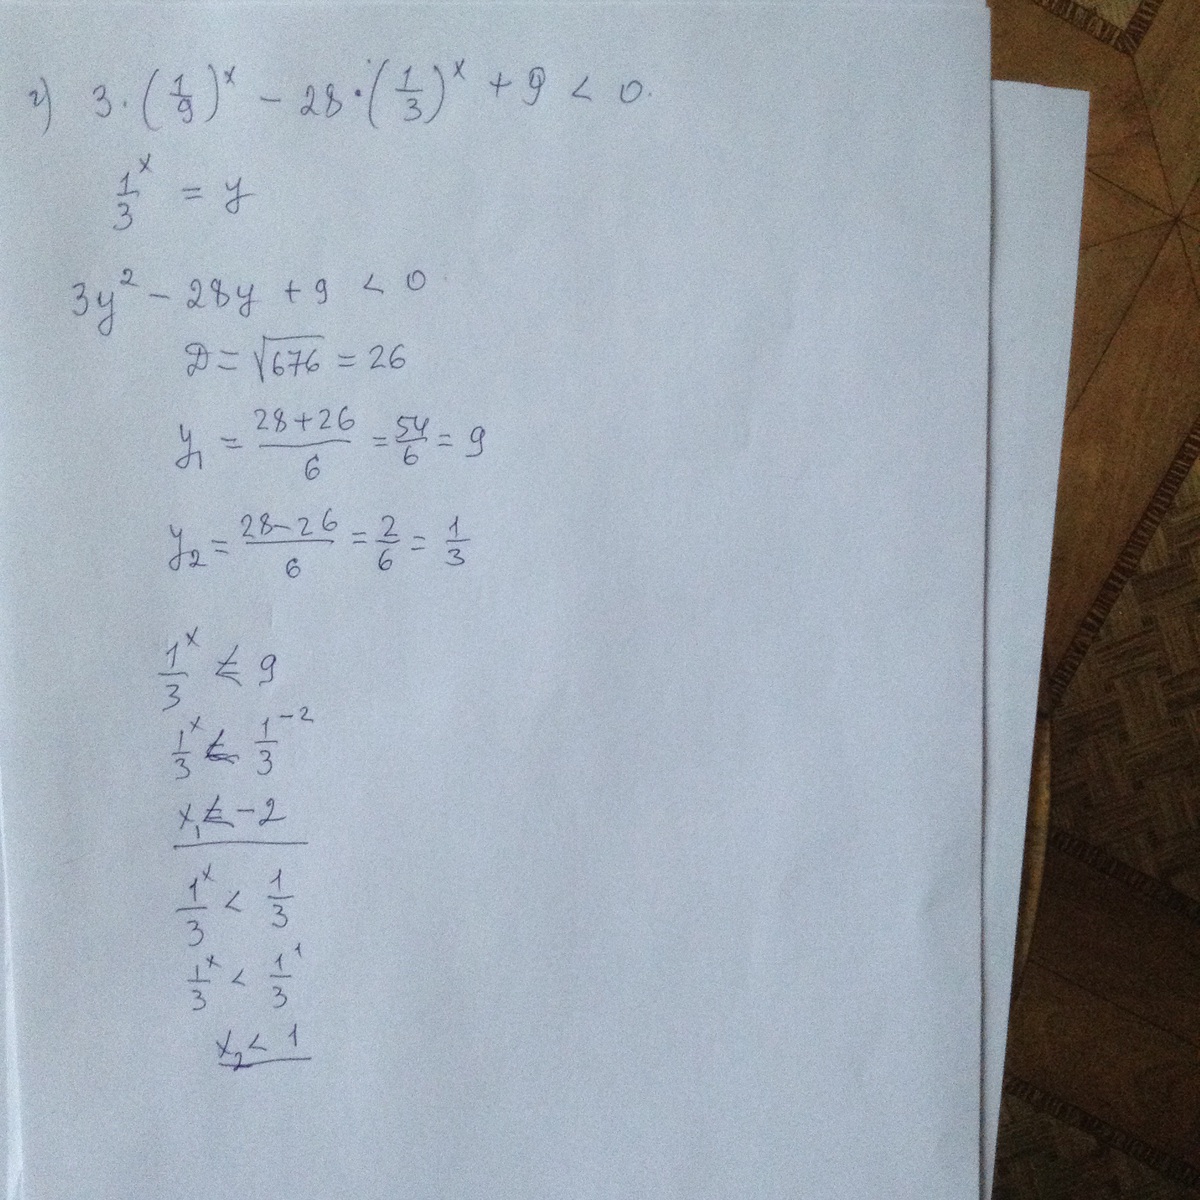 г) 3·(1/9)^x − 28·(1/3)^x + 9 < 0.
1/3^x = y
3y² − 28y + 9 < 0
D = √676 = 26
y₁ = (28+26)/6 = 54/6 = 9
y₂ = (28−26)/6 = 2/6 = 1/3
1/3^x < 9
1/3^x < 1/3^−2
x₁ < −2
1/3^x < 1/3
1/3^x < 1/3^1
x₂ < 1